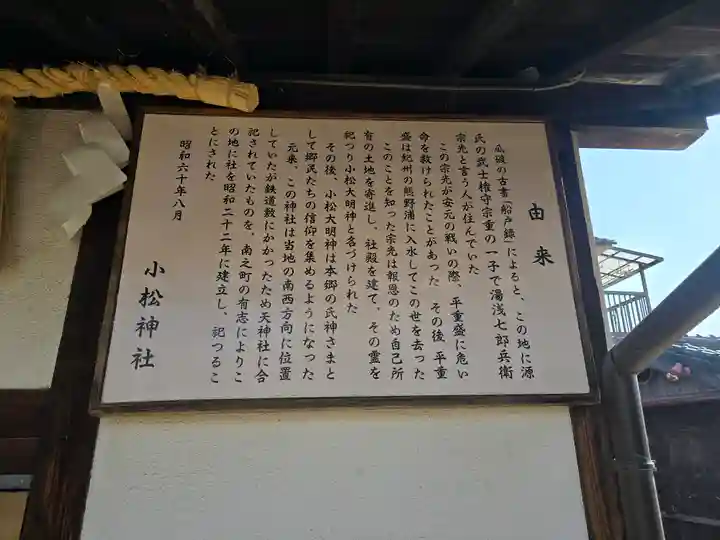 由来
瓜破の古書「船戸録」によると、この地に源
氏の武士権守宗重の一子で湯浅七郎兵衛
宗光と言う人が住んでいた
この宗光が安元の戦いの際、平重盛に危い
命を救けられたことがあった その後、平重
盛は紀州の熊野浦に入水してこの世を去った
このことを知った宗光は報恩のため自己所
有の土地を寄進し、社殿を建て、その霊を
祀つり小松大明神と名づけられた
その後、小松大明神は本郷の氏神さまと
して郷民たちの信仰を集めるようになった
元来、この神社は当地の南西方向に位置
していたが鉄道敷にかかったため天神社に合
祀されていたものを、南之町の有志によりこ
の地に社を昭和二十二年に建立し、祀つるこ
とにされた
昭和六十年八月
小松神社